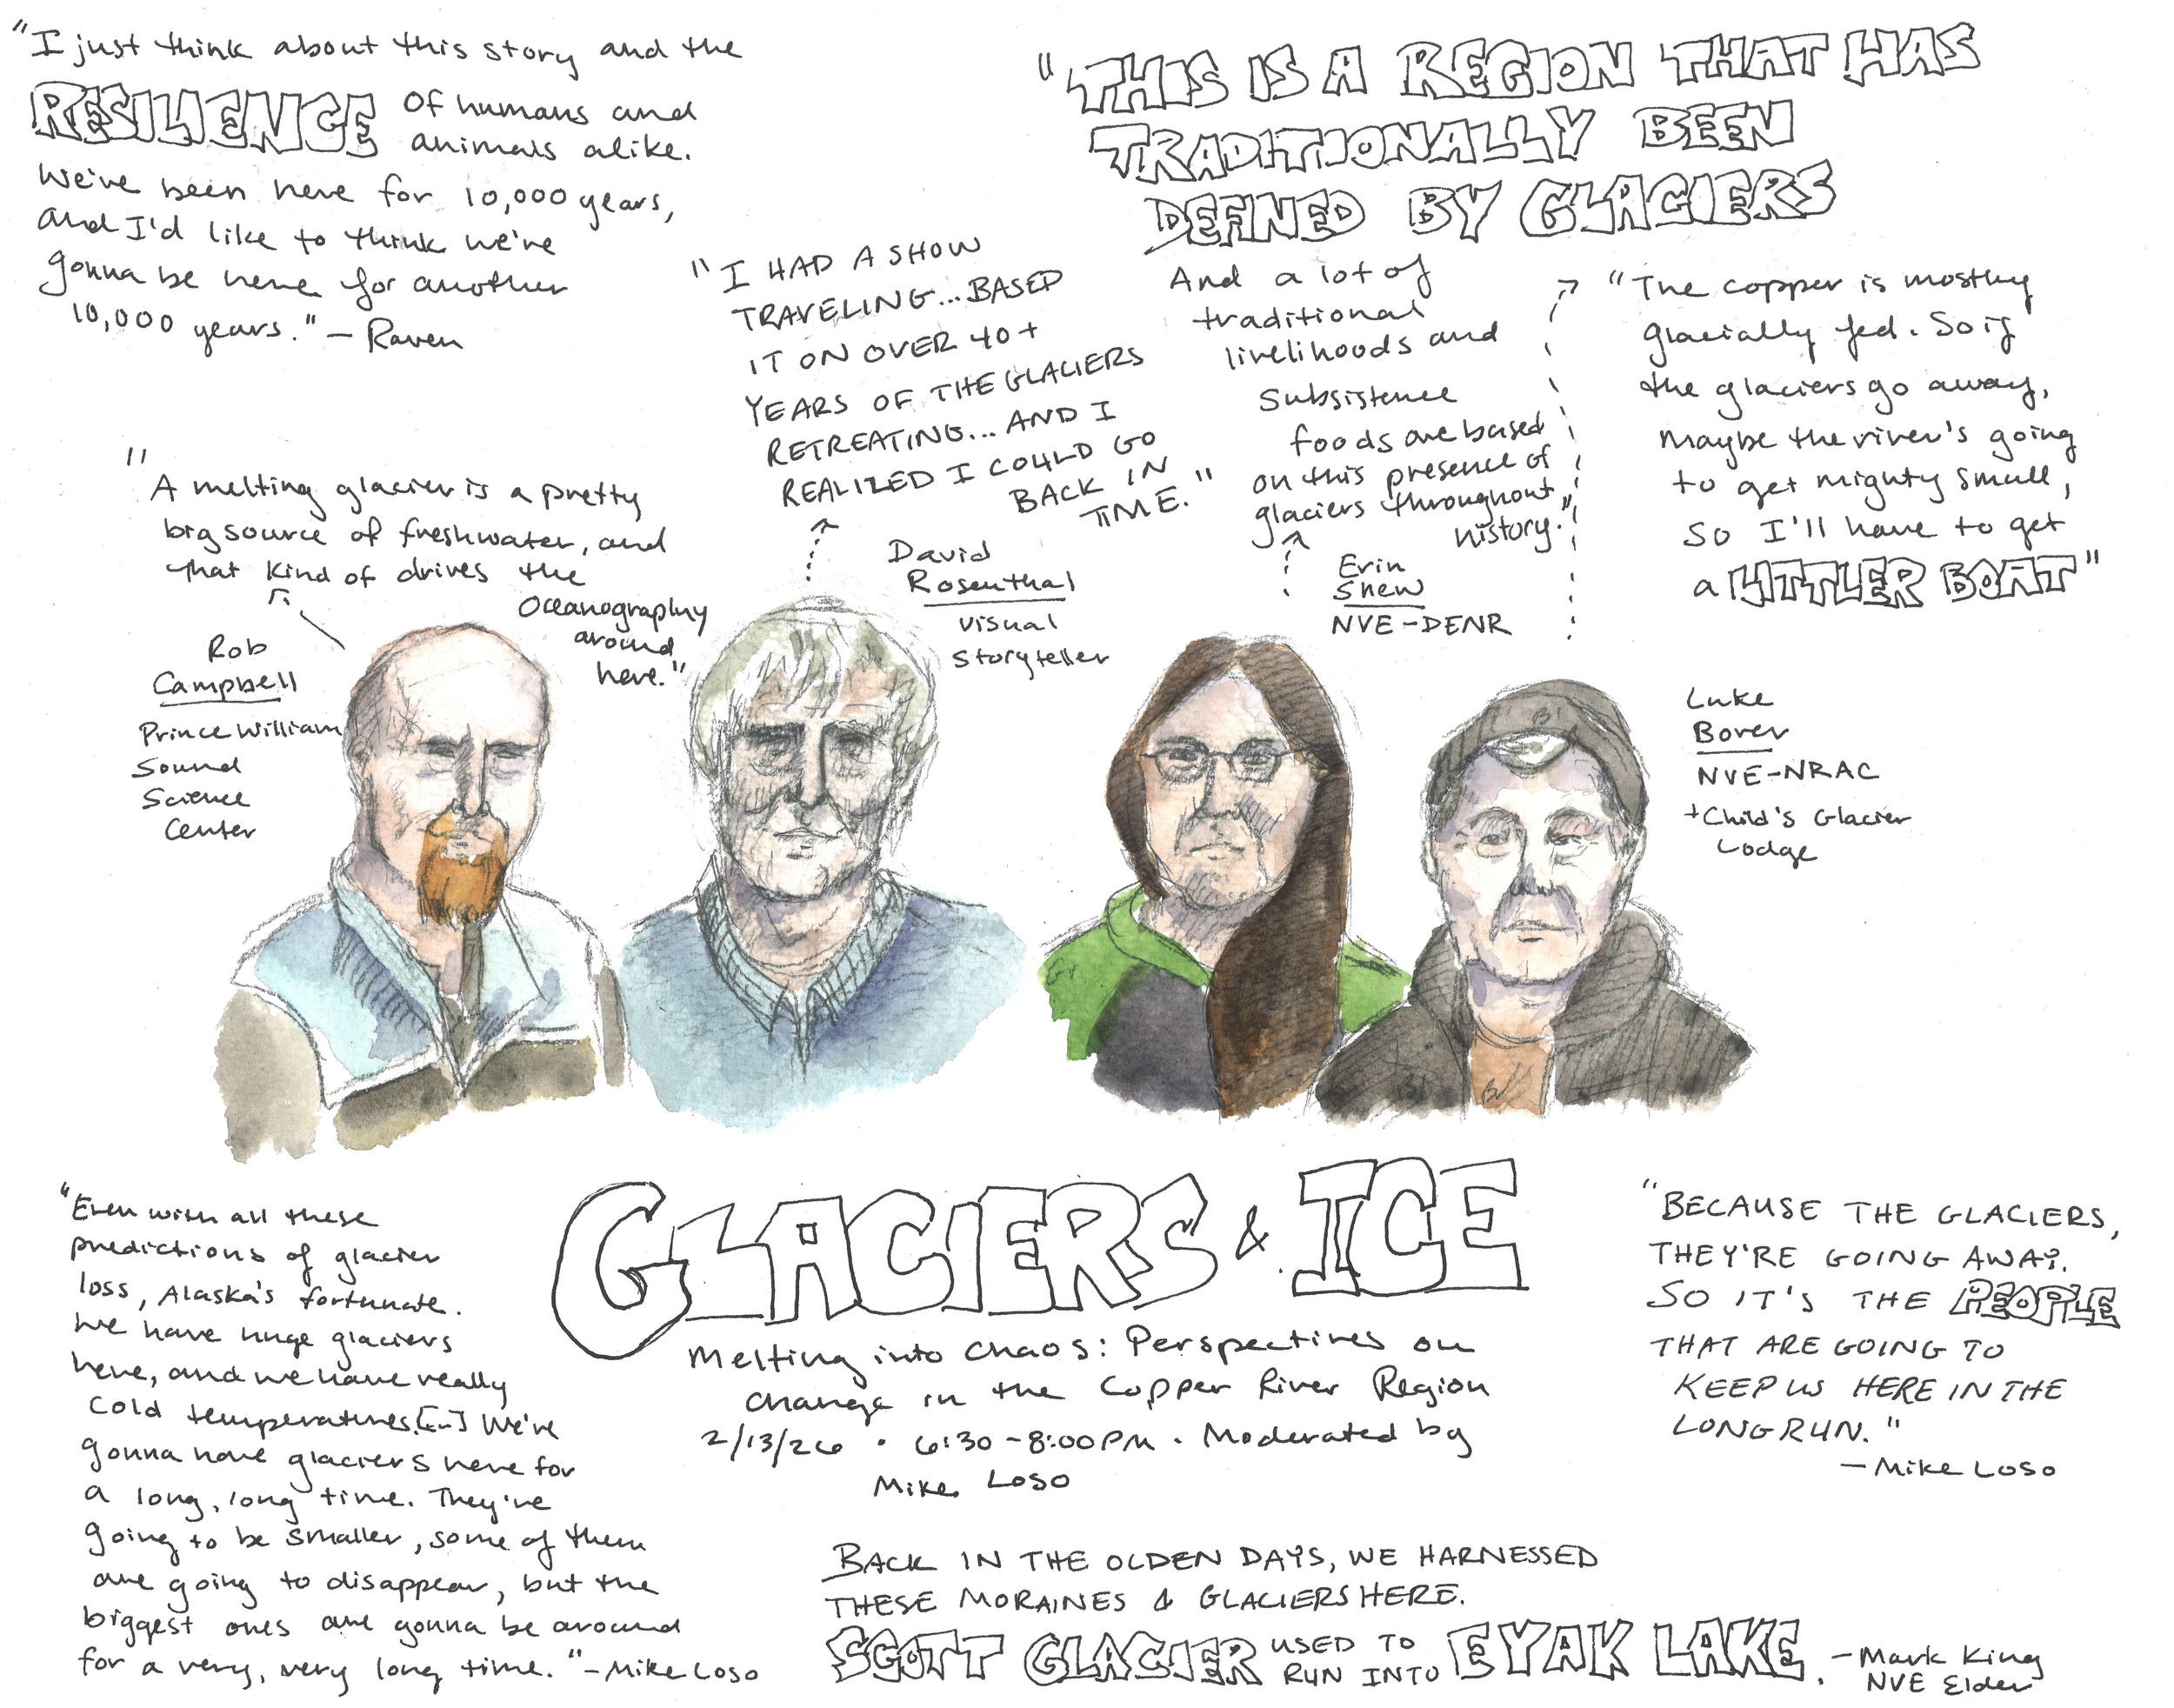 "I just think about this story and the
RESILIENCE of humans and
animals alike.
We've been here for 10,000 years,
and I'd like to think we've
gonna be here for another
10,000 years." – Raven
"THIS IS A REGION THAT HAS
TRADITIONALLY BEEN
DEFINED BY GLACIERS
And a lot of
traditional
livelihoods and
subsistence
foods are based
on this presence of
glaciers throughout
history."
Erin
Shew
NVE-DENR
"I HAD A SHOW
TRAVELING... BASED
IT ON OVER 40+
YEARS OF THE GLACIERS
RETREATING... AND I
REALIZED I COULD GO
BACK IN
TIME."
David
Rosenthal
visual
storyteller
"The copper is mostly
glacially fed. So if
the glaciers go away,
maybe the river's going
to get mighty small,
so I'll have to get
a LITTLER BOAT"
Luke
Borer
NVE-NRAC
+ Child's Glacier
Lodge
"A melting glacier is a pretty
big source of freshwater, and
that kind of drives the
oceanography
around
here."
Rob
Campbell
Prince William
Sound
Science
Center
GLACIERS & ICE
Melting into chaos: Perspectives on
change in the Copper River Region
2/13/26 • 6:30-8:00PM • Moderated by
Mike Loso
"Even with all these
predictions of glacier
loss, Alaska's fortunate.
We have huge glaciers
here, and we have really
cold temperatures [...] We're
gonna have glaciers here for
a long, long time. They're
going to be smaller, some of them
are going to disappear, but the
biggest ones are gonna be around
for a very, very long time." – Mike Loso
"BECAUSE THE GLACIERS,
THEY'RE GOING AWAY.
SO IT'S THE PEOPLE
THAT ARE GOING TO
KEEP US HERE IN THE
LONG RUN."
– Mike Loso
BACK IN THE OLDEN DAYS, WE HARNESSED
THESE MORAINES & GLACIERS HERE.
SCOTT GLACIER USED TO
RUN INTO EYAK LAKE. – Mark King
NVE Elder